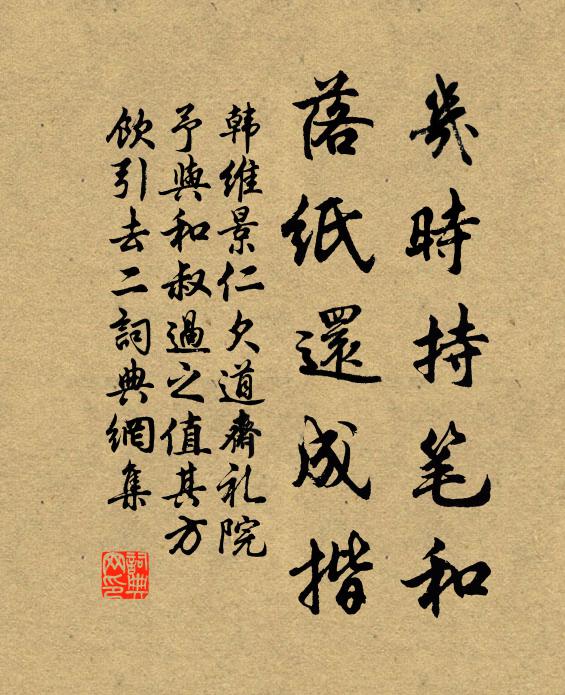 幾時持笔和
落紙還成揩
韓維景仁久道齋礼院
予與和叔過之值其方
飲引去二詞典網集
詞典网印